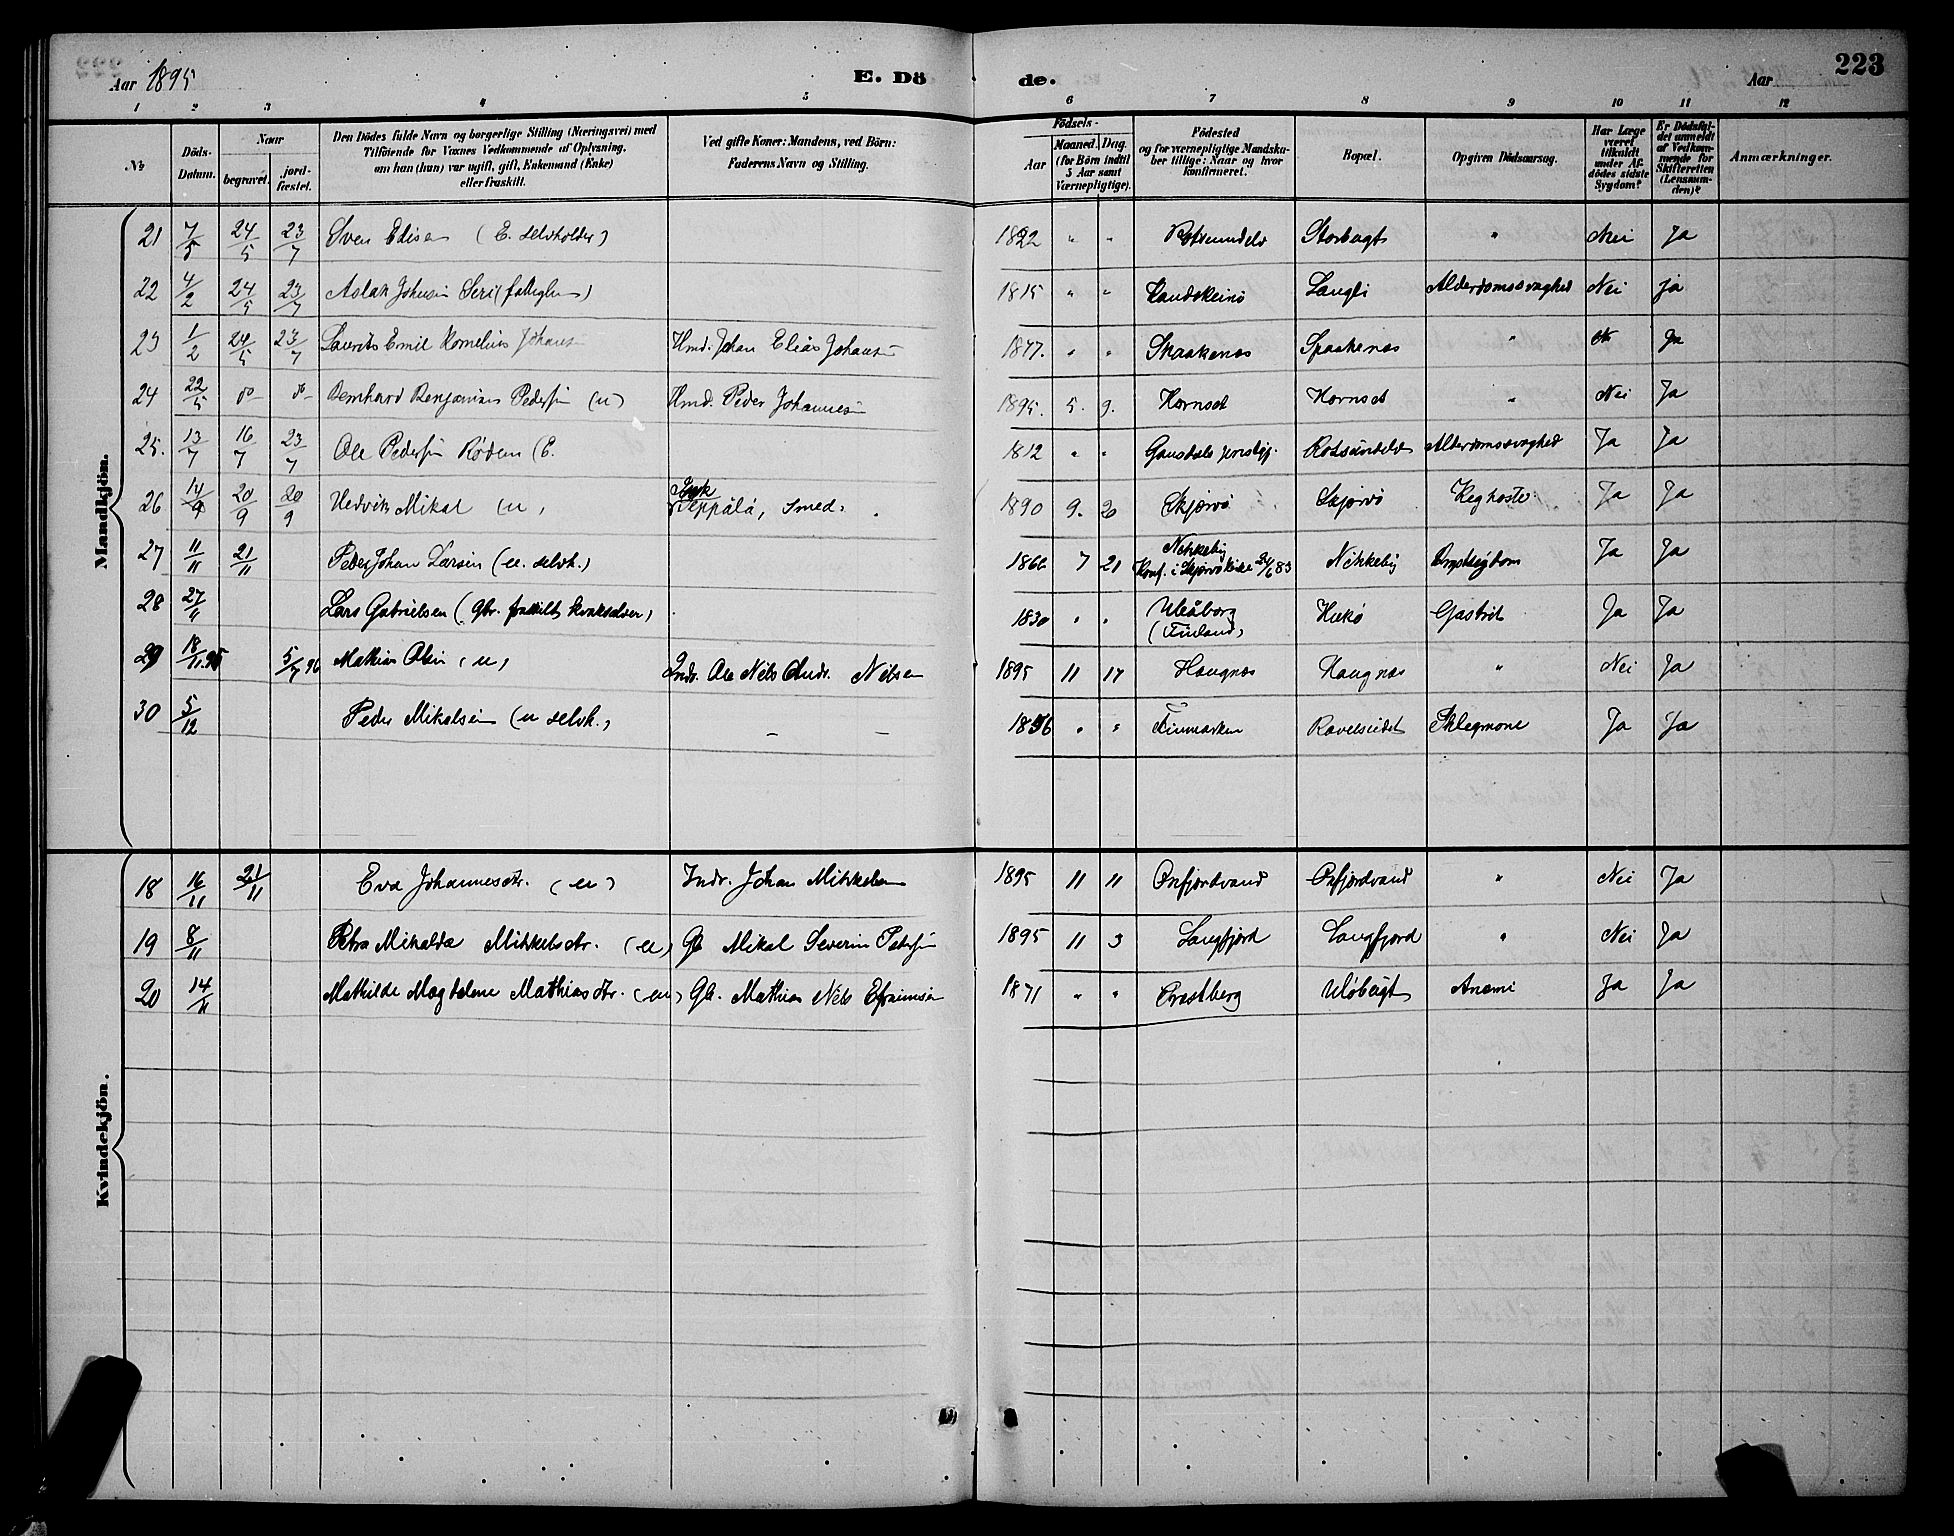 Aar 1895 E. Dö de. Aar 223
1 2 3 4 5 6 7 8 9 10 11 12
№ Döds-Datum. Naar begravet. jord-fæstet. Den Dödes fulde Navn og borgerlige Stilling (Næringsvei) med Tilföiende for Voxnes Vedkommende af Oplysning, om han (hun) var ugift, gift, Enkemand (Enke) eller fraskilt. Ved gifte Koner: Mandens, ved Börn: Faderens Navn og Stilling. Födsels- Aar Maaned. Dag. (for Börn indtil 5 Aar samt Værnepligtige). Födested og for værnepligtige Mandska-ber tillige: Naar og hvor konfirmeret. Bopæl. Opgiven Dödsaarsag. Har Læge været tilkaldt under Af-dödes sidste Sygdom? Er Dödsfal-det anmeldt af Vedkom-mende for Skifteretten (Lensman-den)? Anmærkninger.
Mandkjön.
21 7/5 24/5 23/7 Sven Elisen (E. selvholder) 1822 " " Rotsundelv Storbugt " Nei Ja
22 4/2 24/5 23/7 Aslak Johnsen Seri (fattiglem) 1815 " " Kautokeino Langli Alderdomssvaghed Nei ja
23 1/2 24/5 23/7 Laurits Emil Kornelius Johans Hmd. Johan Elias Johans 1877. " " Skaakenes Spaakenes " N Ja
24 22/5 do do Bernhard Benjamin Pedersen (u) Hmd. Peder Johannesen 1895. 5. 9. Hornset Hornset " Nei Ja
25. 13/7 16/7 23/7 Ole Pedersen Röden (E. 1812 " " Gausdals prestgj. Rotsundelv Alderdomssvaghed Ja Ja
26 14/9 20/9 20/9 Hedvik Mikal (u, Isak Seppälä, Smed. 1890 9. 20 Skjærvö Skjærvö Kighoste Ja Ja
27 11/11 21/11 Peder Johan Larsen (u. selvh.) 1866 7 21 Nikkeby Konf. i Skjærvö Kirke 24/6 83 Nikkeby Brystsygdom Ja Ja
28 27/11 Lars Gabrielsen (Gbr. fraskilt kvaksalver) 1830 " " Uleåborg (Finland) Hukö Gastrit Ja Ja
29 18/11.95 5/7 96 Mathias Olsen (u, Indr. Ole Nils Andr. Nilsen 1895 11 17 Haugnæs Haugnæs " Nei Ja
30 5/12 Peder Mikalsen (u selvh., – – 1856 " " Finmarken Ravelseidet Phlegmone Ja Ja
Kvindekjön.
18 16/11 21/11 Eva Johannesdtr. (u) Indr. Johan Mikkelsen 1895 11 11 Oxfjordvand Oxfjordvand " Nei Ja
19 8/11 Petra Mikalda Mikkelsdtr. (u) Gb Mikal Severin Petersen 1895 11 3 Langfjord Langfjord " Nei Ja
20 14/11 Mathilde Magdalene Mathiasdtr. (u) Gb. Mathias Nils Efraimsen 1871 " " Præstberg Ulöbugt Anæmi Ja Ja